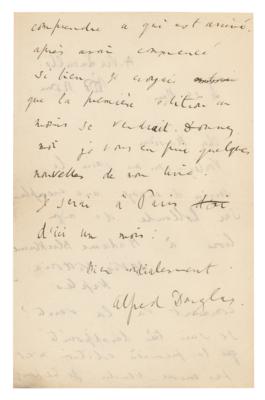 comprendre ce qui est arrivé
après avoir commencé
si bien. Je croyais
que la première édition au
moins se vendrait. Donnez
moi je vous en prie quelques
nouvelles de mon livre.
Je serai à Paris
d'ici un mois.
Bien cordialement.
Alfred Douglas.